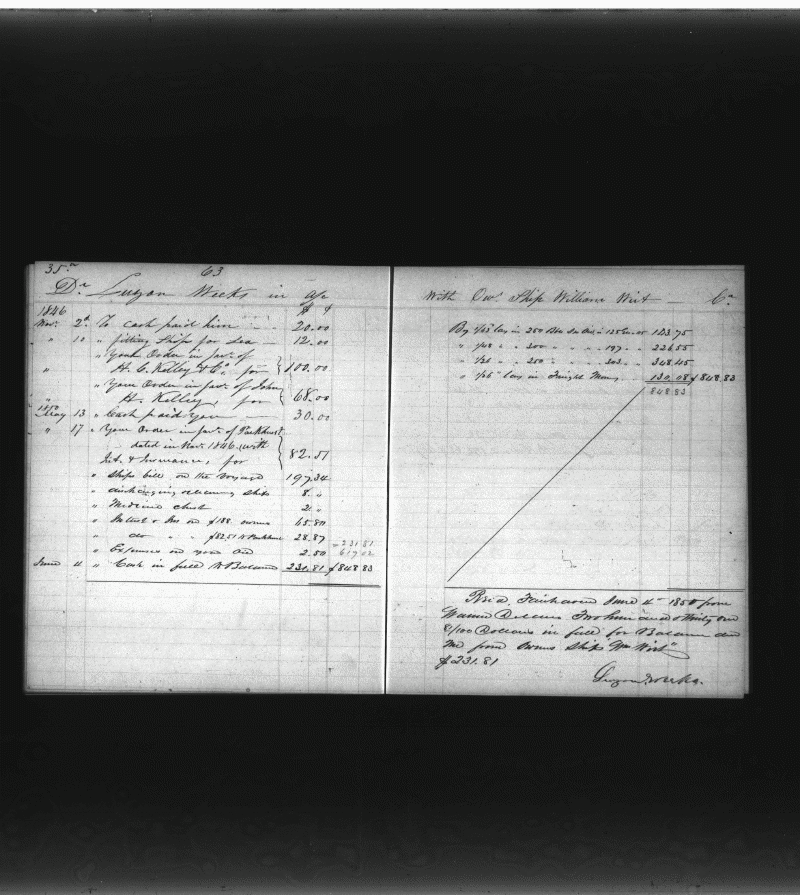 35.
63
Dr Luzon Weeks in a/c
$ ¢
1846
Nov. 2d To Cash paid him 20.00
" 10 " fitting Ship for Sea 12.00
" Your Order in fav. of
" H. C. Kelley & Co. for 100.00
" Your Order in fav. of John
" H. Kelley, for 68.00
May 13 " Cash paid you 30.00
" 17 " Your Order in fav. of Parkhurst
dated in Nov. 1846 with
Int. & Insurance, for 82.51
" Ships bill on the Voyage 197.34
" discharging ship 8.
" Medicine chest 2.
" Interest & Ins on $188. 65.80
" do " " $82.51 28.87
231.81
" Expenses on your 2.50
617.02
June 4 " Cash in full 231.81 $848.83
With Ow. Ship William Wirt Cr
By lay in 250 143.75
" " 300 " " 197 " 226.55
" " 250 " " 303 " 348.45
" lay in Freight Money 130.08 $848.83
848.83
Fairhaven June 4th 1850 from
Two hundred & thirty one
81/100 Dollars in full for Balance due
me from owners Ship "Wm Wirt"
$231.81
Luzon Weeks.